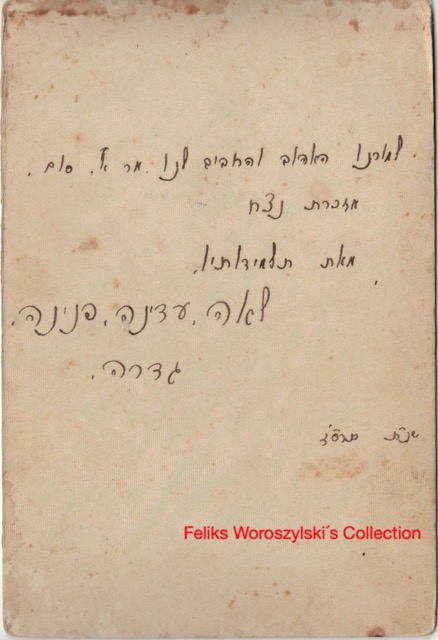 למורנו האהוב והחביב לנו מר א. סום.
מזכרת נצח
מאת תלמידותיו.
לאה, עדינה, פנינה.
גדרה.
שנת
Feliks Woroszylski´s Collection